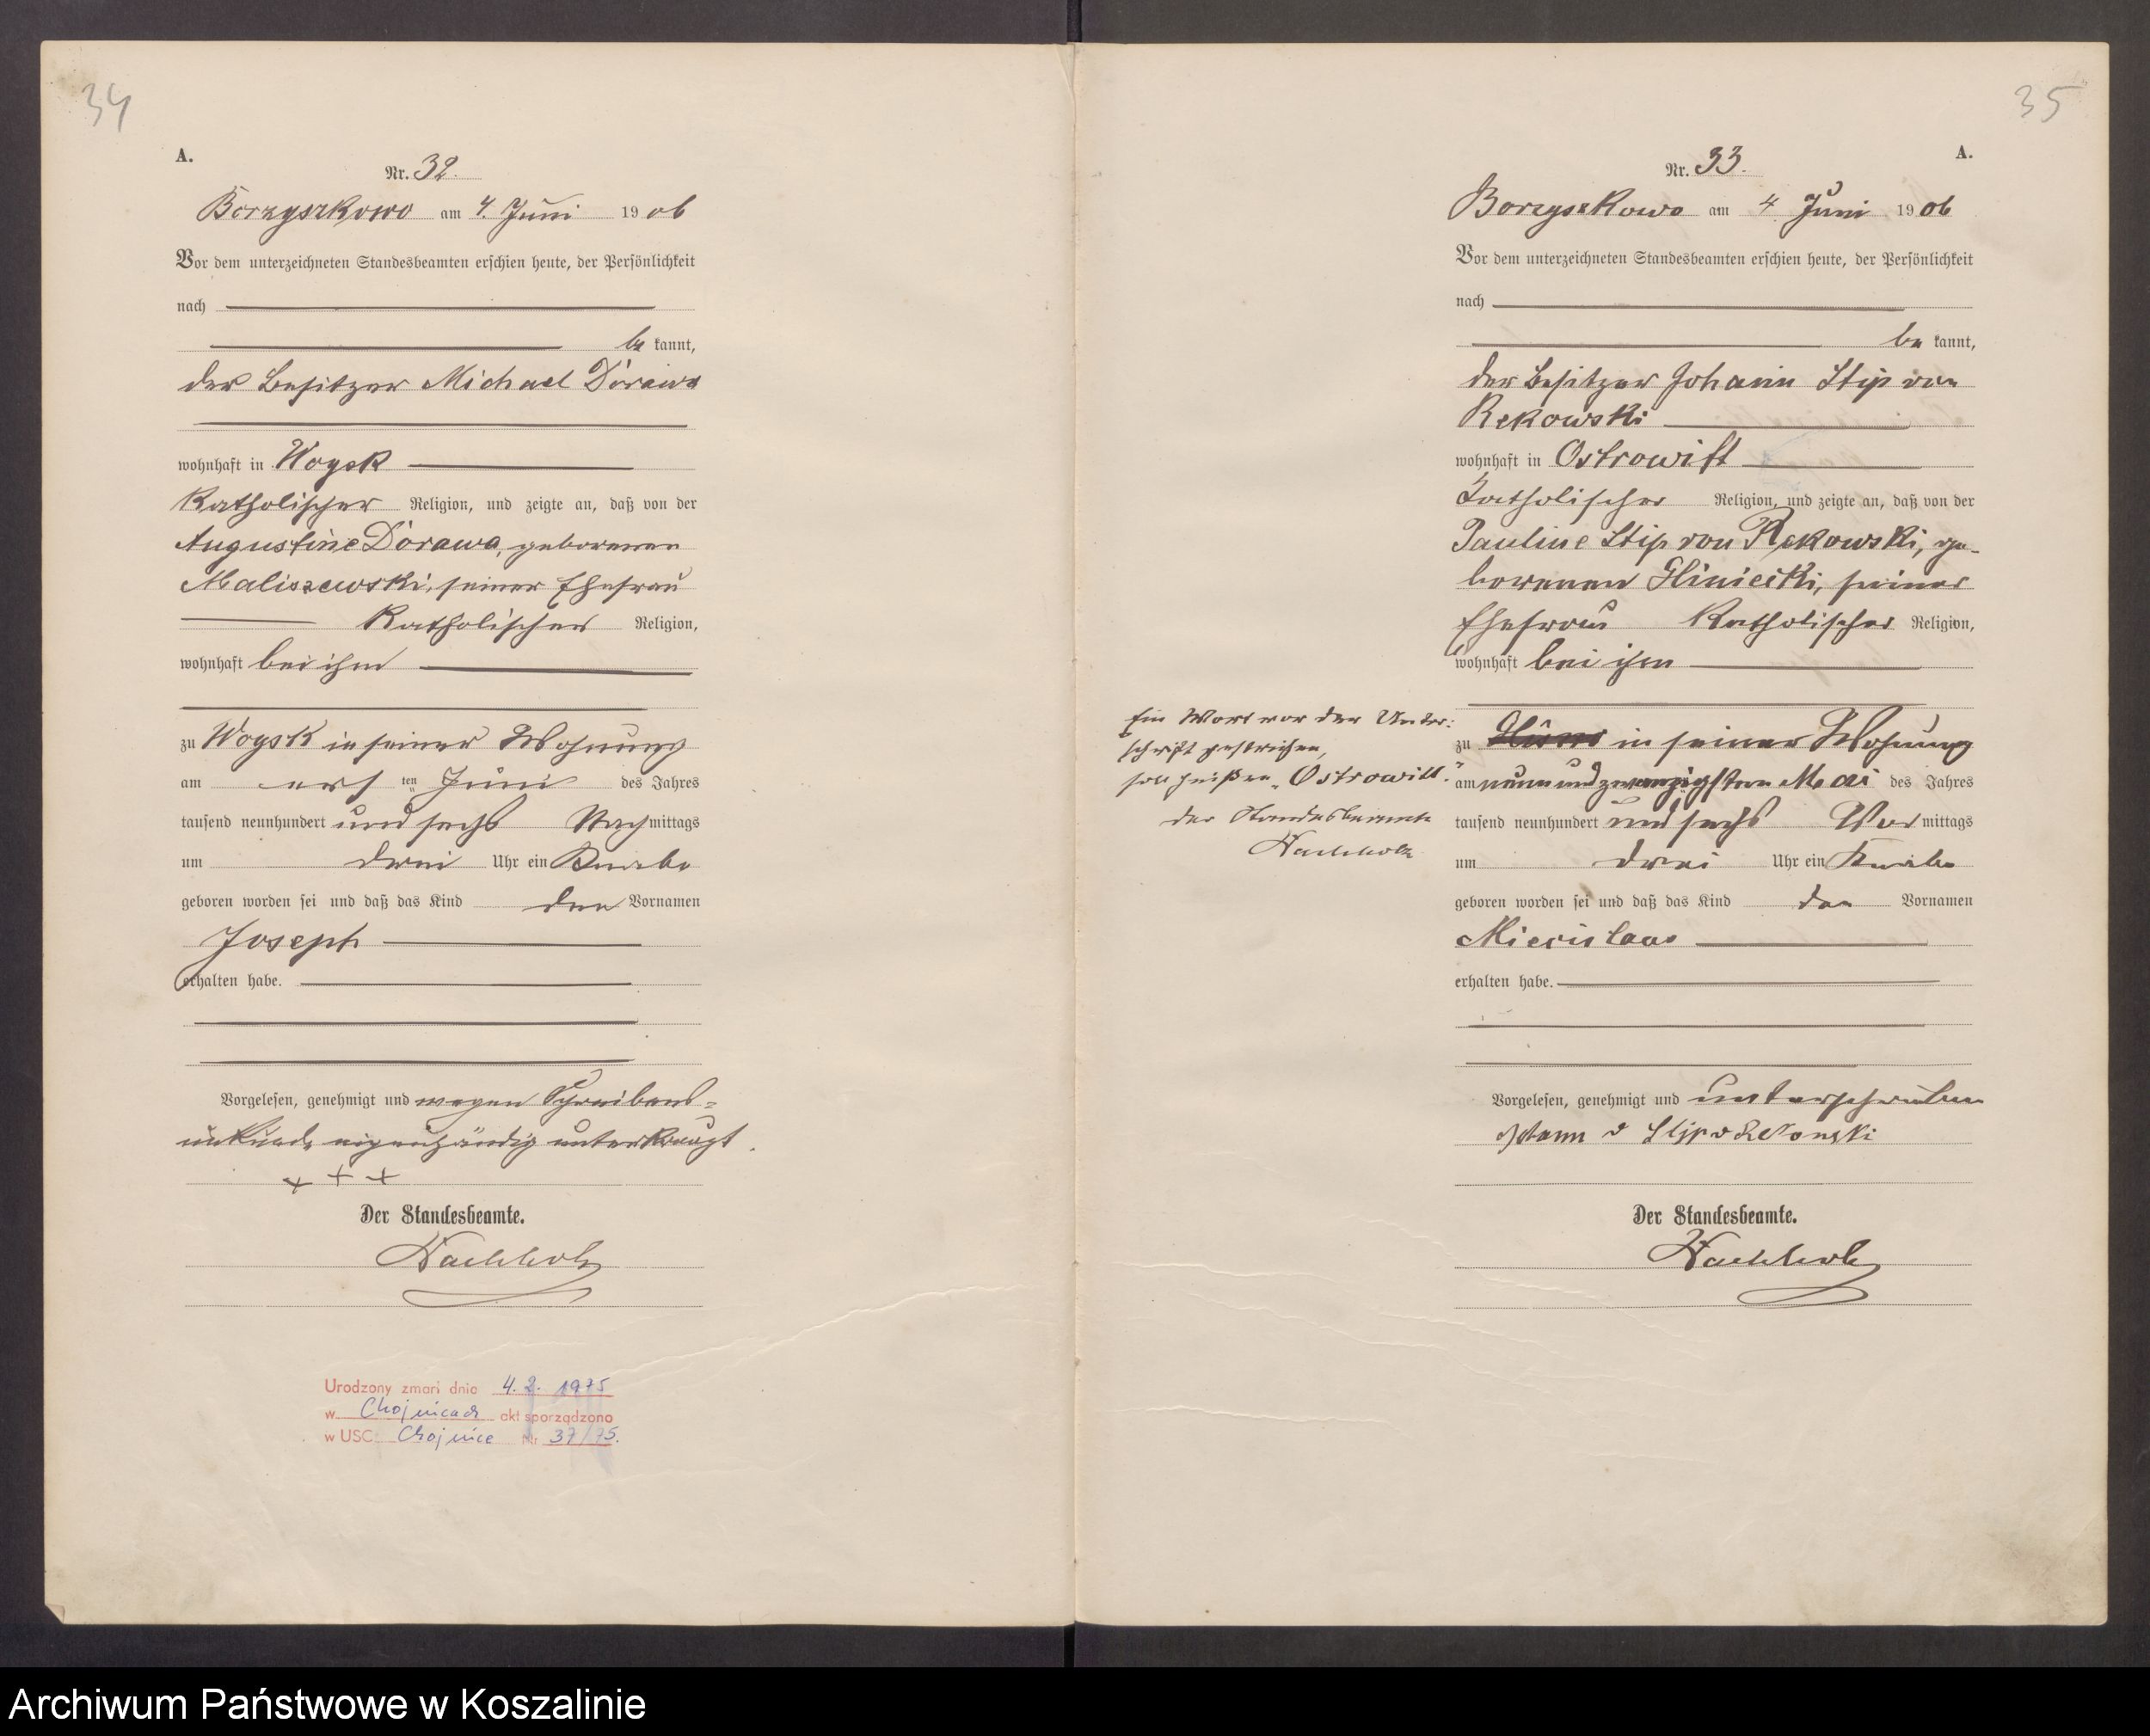 34
A.
Nr. 32.
Borzyszkowo am 4. Juni 1906
Vor dem unterzeichneten Standesbeamten erschien heute, der Persönlichkeit
nach
be kannt,
der Besitzer Michael Dorawa
wohnhaft in Woysk
katholischer Religion, und zeigte an, daß von der
Augustine Dorawa, geborenen
Maliszewski, seiner Ehefrau
katholischer Religion,
wohnhaft bei ihm
zu Woysk in seiner Wohnung
am ersten Juni des Jahres
tausend neunhundert und sechs Nachmittags
um drei Uhr ein Knabe
geboren worden sei und daß das Kind den Vornamen
Joseph
erhalten habe.
Vorgelesen, genehmigt und wegen Schreibens-
unkunde eigenhändig unterkreuzt.
+ + +
Der Standesbeamte.
Nachholz
Urodzony zmarł dnia 4.2. 1975
w Chojnicach akt sporządzono
w USC Chojnice Nr 37/75.
35
A.
Nr. 33.
Borzyszkowo am 4. Juni 1906
Vor dem unterzeichneten Standesbeamten erschien heute, der Persönlichkeit
nach
be kannt,
der Besitzer Johann Stip von
Rekowski
wohnhaft in Ostrowitt
katholischer Religion, und zeigte an, daß von der
Pauline Stip von Rekowski, ge-
borenen Gliniecki, seiner
Ehefrau katholischer Religion,
wohnhaft bei ihm
zu in seiner Wohnung
am neunundzwanzigsten Mai des Jahres
tausend neunhundert und sechs Vormittags
um drei Uhr ein Knabe
geboren worden sei und daß das Kind den Vornamen
Miecislaus
erhalten habe.
Vorgelesen, genehmigt und unterschrieben
Johann v Stip v Rekowski
Der Standesbeamte.
Nachholz
Ein Wort vor der Unter:
schrift gestrichen,
soll heißen „Ostrowitt."
der Standesbeamte
Nachholz
Archiwum Państwowe w Koszalinie